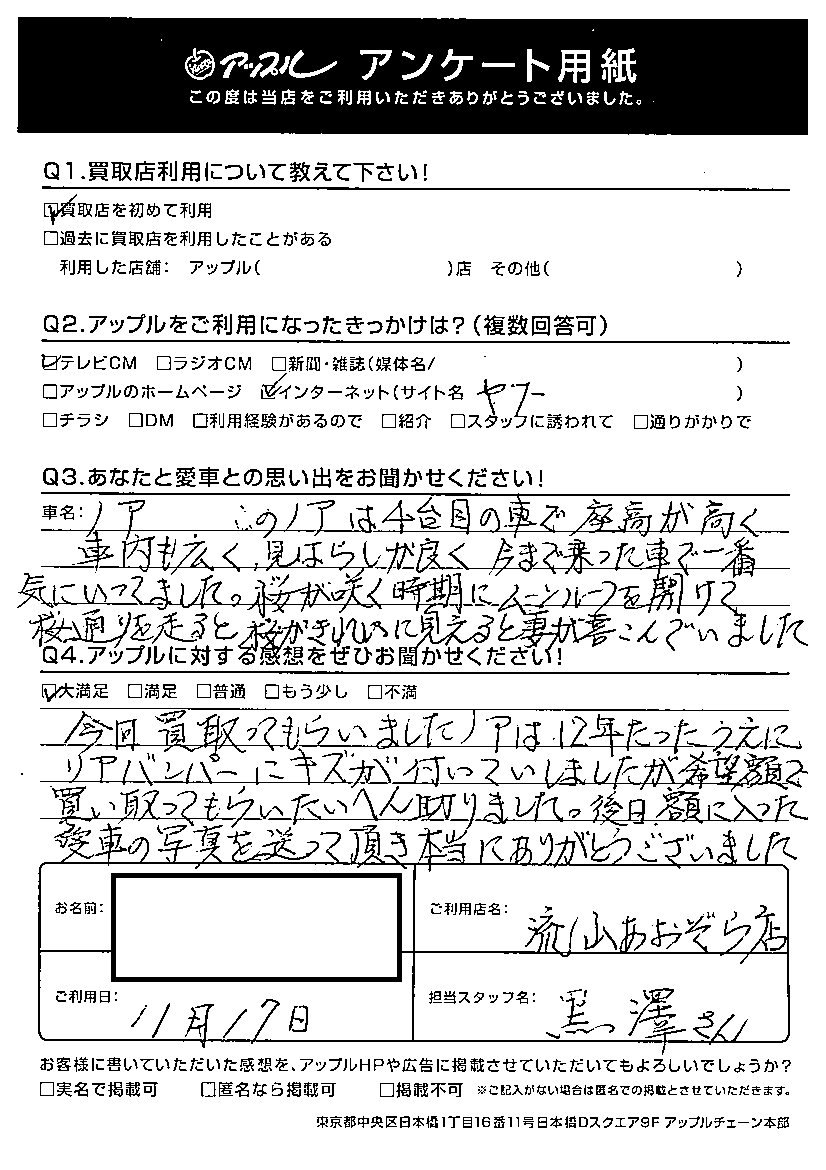 アップル アンケート用紙
この度は当店をご利用いただきありがとうございました。
Q1.買取店利用について教えて下さい!
☑買取店を初めて利用
□過去に買取店を利用したことがある
利用した店舗: アップル( )店 その他( )
Q2.アップルをご利用になったきっかけは?(複数回答可)
☑テレビCM □ラジオCM □新聞・雑誌(媒体名/ )
□アップルのホームページ ☑インターネット(サイト名 ヤフー )
□チラシ □DM □利用経験があるので □紹介 □スタッフに誘われて □通りがかりで
Q3.あなたと愛車との思い出をお聞かせください!
車名: ノア このノアは4台目の車で座高が高く
車内も広く、見はらしが良く 今まで乗った車で一番
気にいってました。桜が咲く時期にムーンルーフを開けて
桜通りを走ると桜がきれいに見えると妻が喜こんでいました
Q4.アップルに対する感想をぜひお聞かせください!
☑大満足 □満足 □普通 □もう少し □不満
今回買取ってもらいましたノアは12年たったうえに
リアバンパーにキズが付いていしましたが希望額で
買い取ってもらいたいへん助りました。後日、額に入った
愛車の写真を送って頂き本当にありがとうございました
お名前:
ご利用店名: 流山あおぞら店
ご利用日: 11月17日
担当スタッフ名: 黒澤さん
お客様に書いていただいた感想を、アップルHPや広告に掲載させていただいてもよろしいでしょうか?
□実名で掲載可 □匿名なら掲載可 □掲載不可 ※ご記入がない場合は匿名での掲載とさせていただきます。
東京都中央区日本橋1丁目16番11号日本橋Dスクエア9F アップルチェーン本部